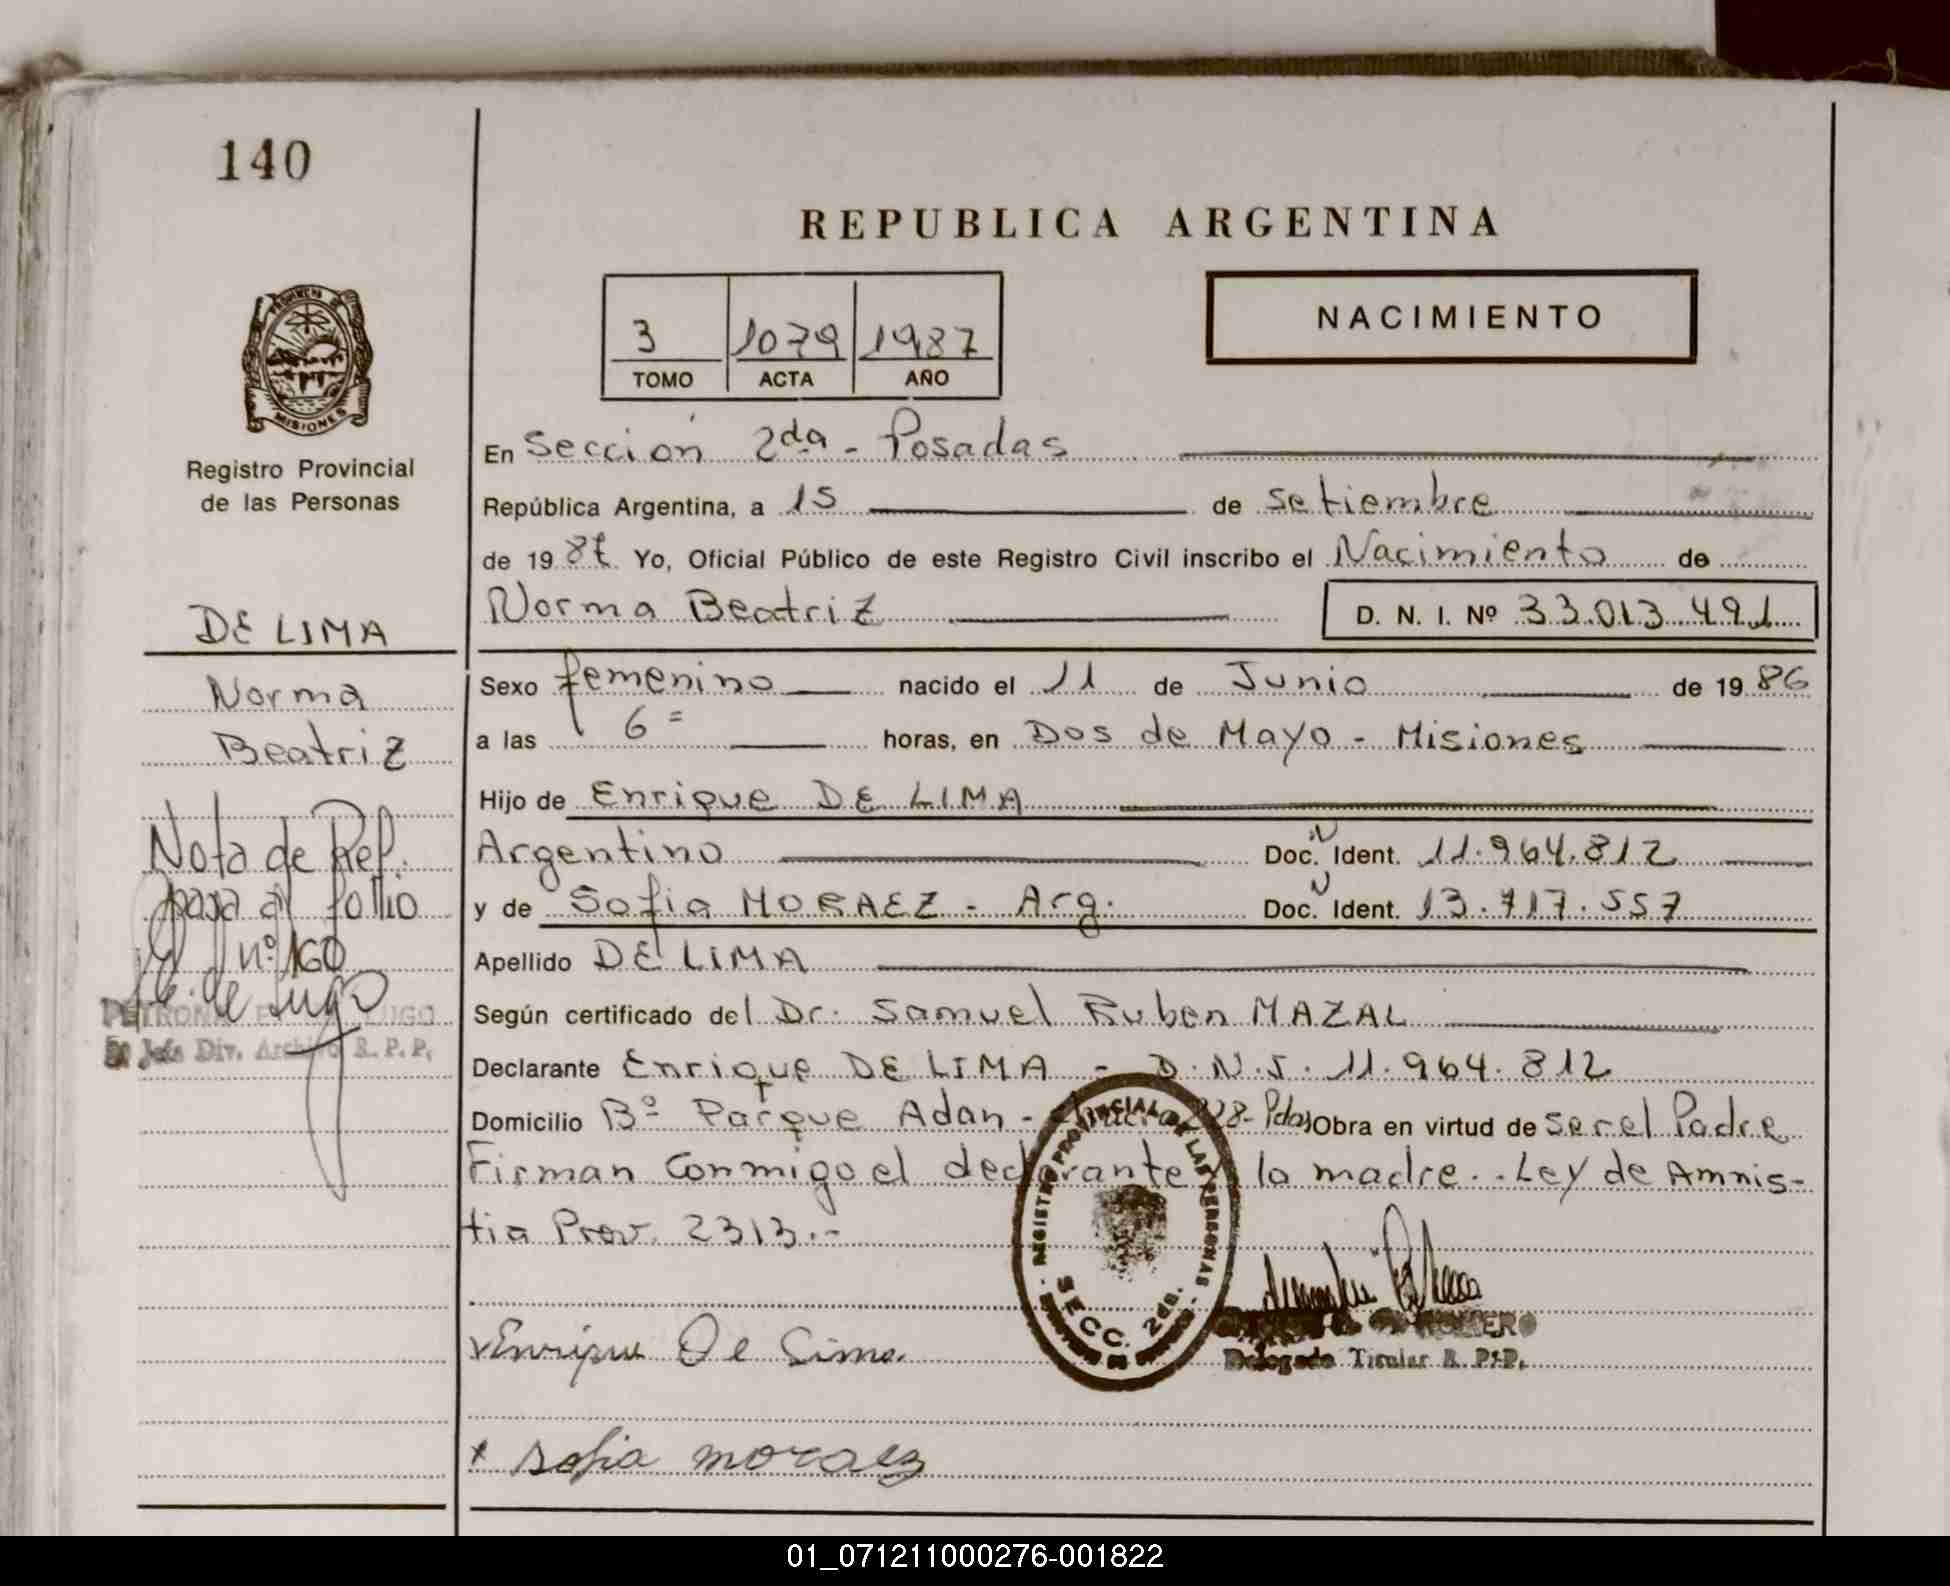 140
REPUBLICA ARGENTINA
PROVINCIA DE
MISIONES
Registro Provincial
de las Personas
3 1079 1987
TOMO ACTA AÑO
NACIMIENTO
En Sección 2da - Posadas
República Argentina, a 15 de Setiembre
de 19 87 Yo, Oficial Público de este Registro Civil inscribo el Nacimiento de
Norma Beatriz D. N. I. Nº 33.013.491
DE LIMA
Norma
Beatriz
Nota de Ref.
pasa al follio
nº 160
Div. Archivo R. P. P.
Sexo femenino nacido el 11 de Junio de 19 86
a las 6 = horas, en Dos de Mayo - Misiones
Hijo de Enrique DE LIMA
Argentino Doc. N Ident. 11.964.812
y de Sofia MORAEZ - Arg. Doc. N Ident. 13.717.557
Apellido DE LIMA
Según certificado del Dr. Samuel Ruben MAZAL
Declarante Enrique DE LIMA - D.N.I. 11.964.812
Domicilio Bº Parque Adan - Chacra 228 - Pdas Obra en virtud de ser el Padre
Firman conmigo el declarante y la madre.. Ley de Amnis-
tia Prov. 2313.-
REGISTRO PROVINCIAL DE LAS PERSONAS
SECC. 2da.
Delegado Titular R. P. P.
Enrique De Lima
x Sofia moraez
01_071211000276-001822